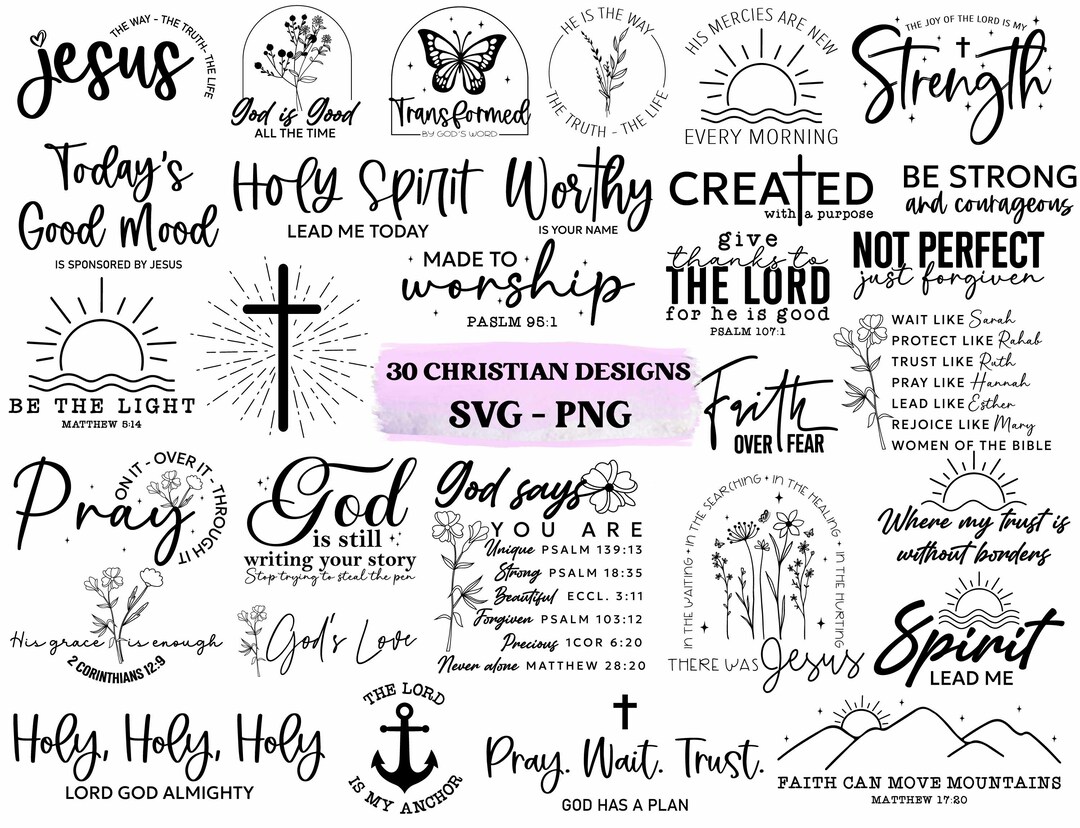 jesus
THE WAY - THE TRUTH - THE LIFE
God is Good
ALL THE TIME
Transformed
BY GOD'S WORD
HE IS THE WAY
THE TRUTH - THE LIFE
HIS MERCIES ARE NEW
EVERY MORNING
THE JOY OF THE LORD IS MY
Strength
Today's
Good Mood
IS SPONSORED BY JESUS
Holy Spirit
LEAD ME TODAY
Worthy
IS YOUR NAME
CREATED
with a purpose
BE STRONG
and courageous
MADE TO
worship
PASLM 95:1
give
thanks to
THE LORD
for he is good
PSALM 107:1
NOT PERFECT
just forgiven
BE THE LIGHT
MATTHEW 5:14
30 CHRISTIAN DESIGNS
SVG - PNG
Faith
OVER FEAR
WAIT LIKE Sarah
PROTECT LIKE Rahab
TRUST LIKE Ruth
PRAY LIKE Hannah
LEAD LIKE Esther
REJOICE LIKE Mary
WOMEN OF THE BIBLE
Pray
ON IT - OVER IT - THROUGH IT
God
is still
writing your story
Stop trying to steal the pen
God says
YOU ARE
Unique PSALM 139:13
Strong PSALM 18:35
Beautiful ECCL. 3:11
Forgiven PSALM 103:12
Precious 1COR 6:20
Never alone MATTHEW 28:20
IN THE WAITING • IN THE SEARCHING • IN THE HEALING • IN THE HURTING
THERE WAS Jesus
Where my trust is
without borders
His grace is enough
2 CORINTHIANS 12:9
God's Love
Spirit
LEAD ME
Holy, Holy, Holy
LORD GOD ALMIGHTY
THE LORD
IS MY ANCHOR
Pray. Wait. Trust.
GOD HAS A PLAN
FAITH CAN MOVE MOUNTAINS
MATTHEW 17:20